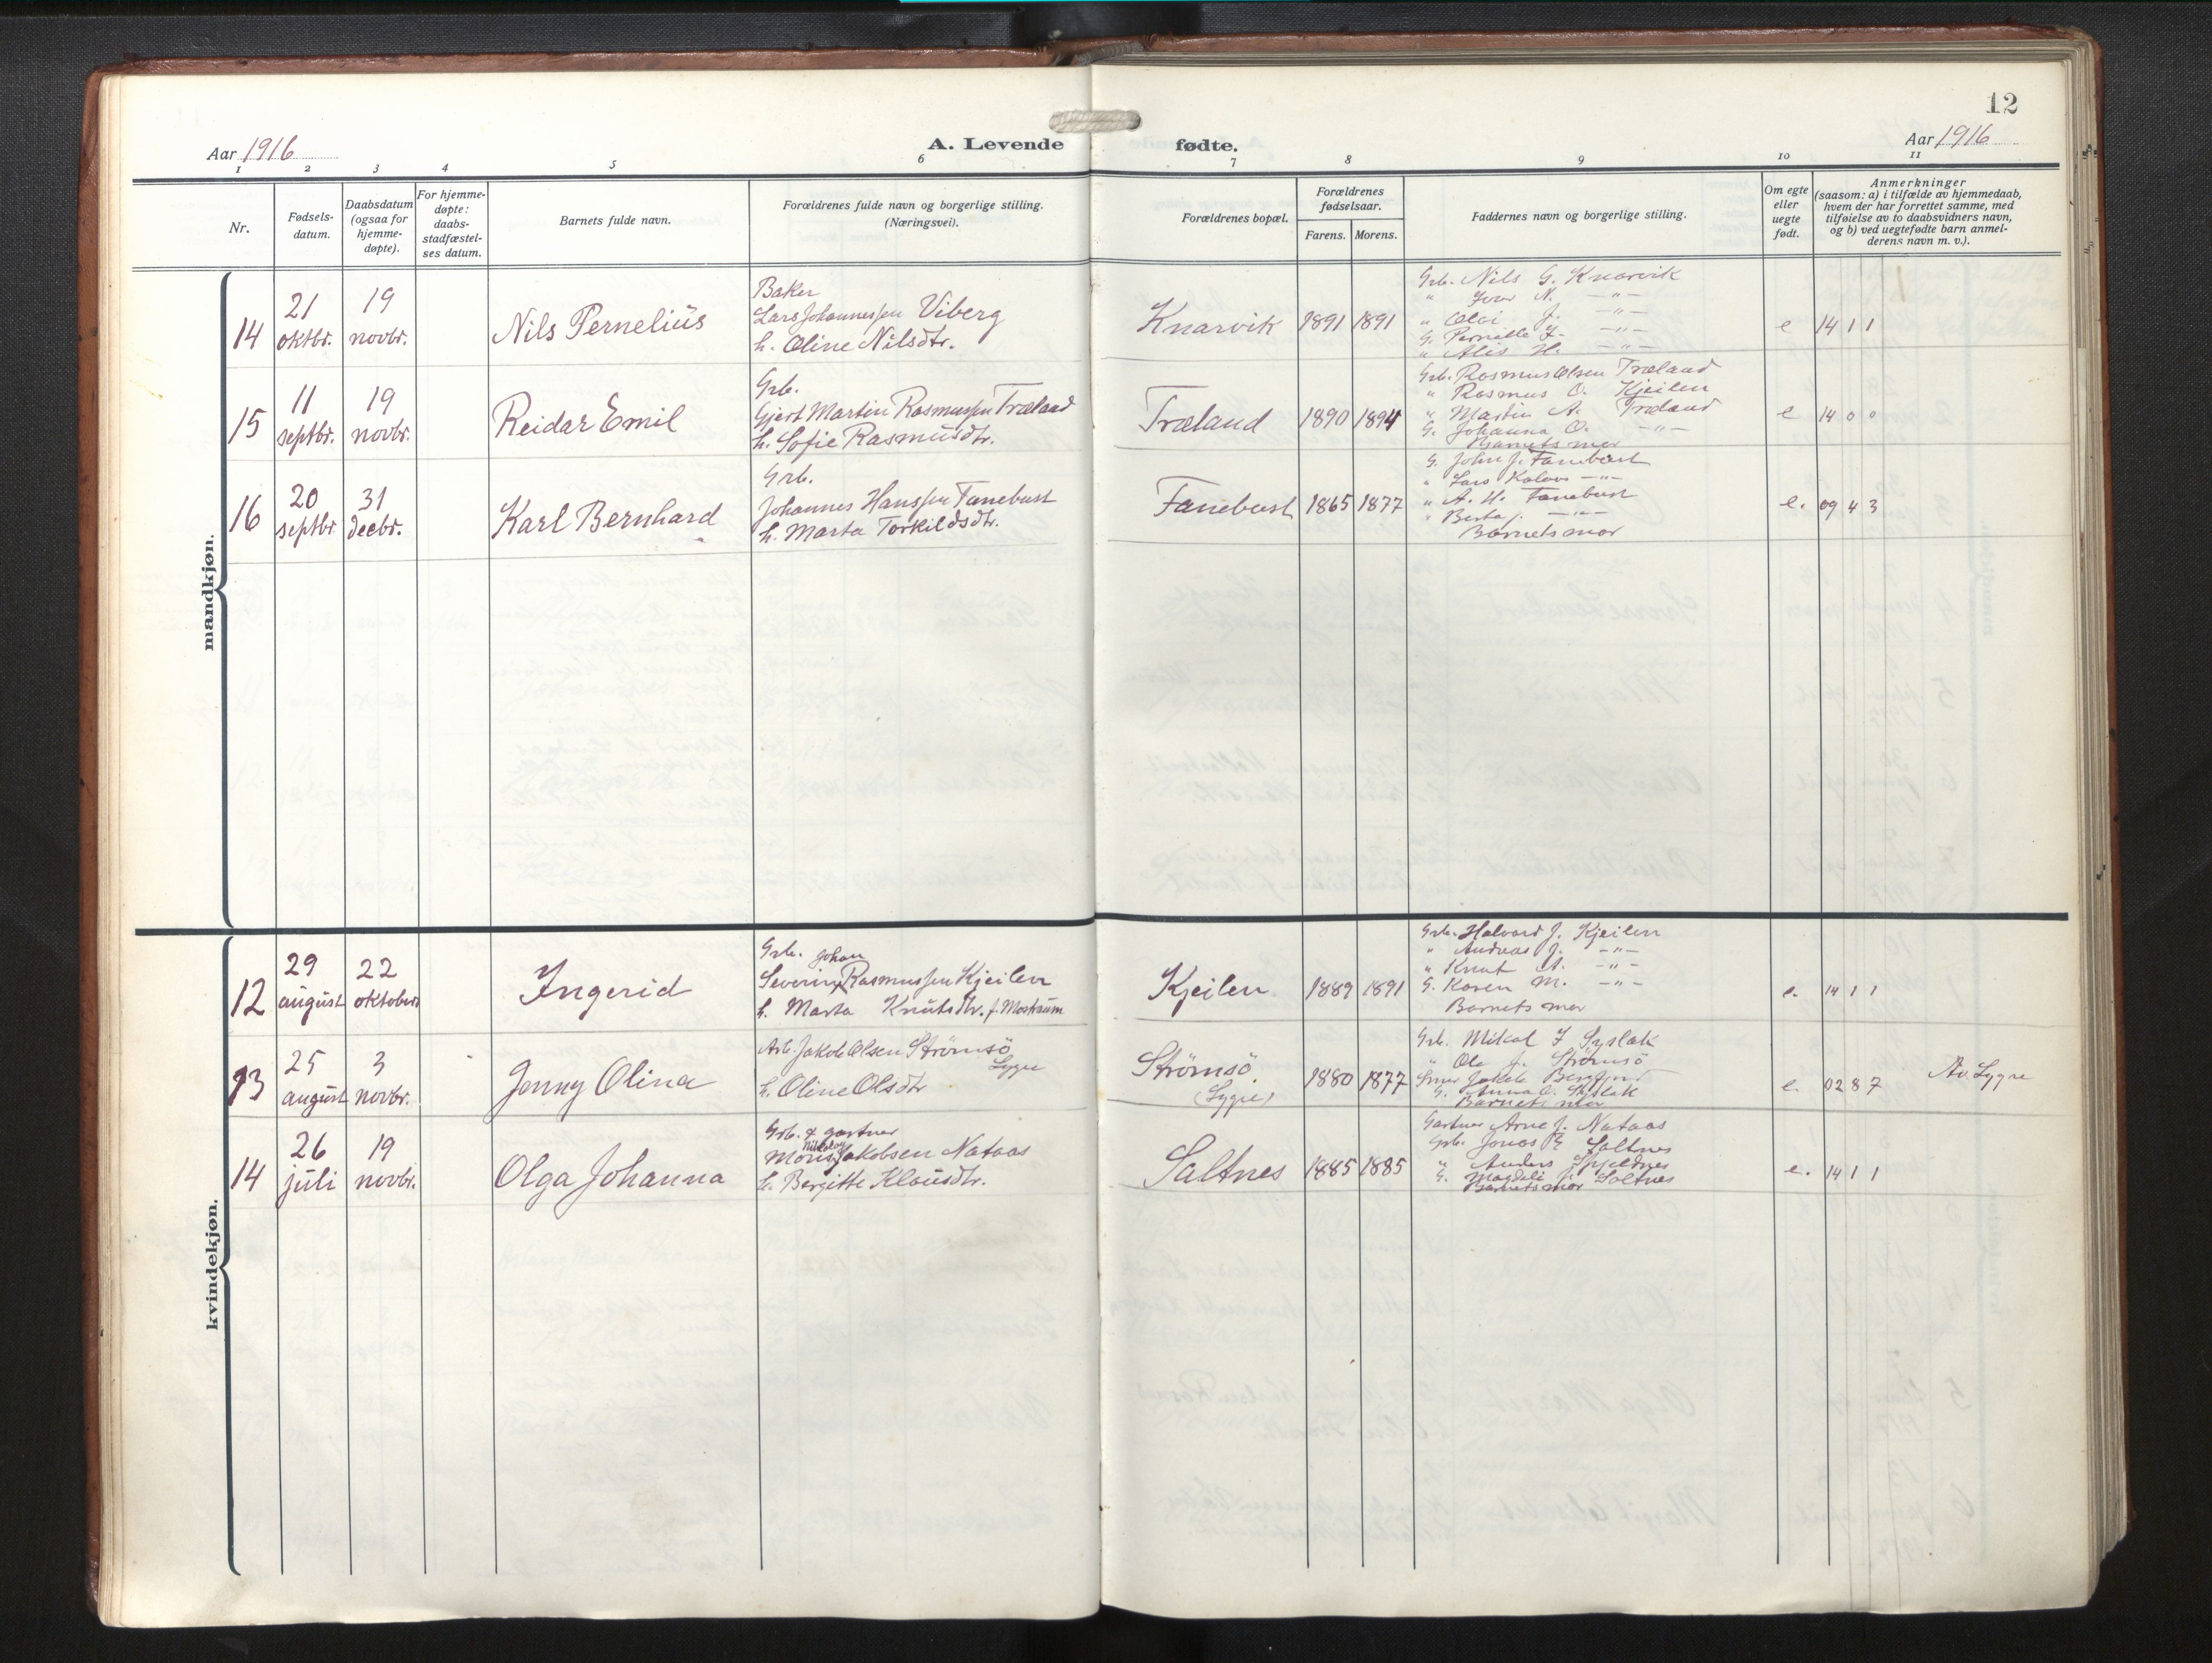 12
Aar 1916
A. Levende fødte.
Aar 1916
1 2 3 4 5 6 7 8 9 10 11
Nr.
Fødsels-
datum.
Daabsdatum
(ogsaa for
hjemme-
døpte).
For hjemme-
døpte:
daabs-
stadfæstel-
ses datum.
Barnets fulde navn.
Forældrenes fulde navn og borgerlige stilling.
(Næringsvei).
Forældrenes bopæl.
Forældrenes
fødselsaar.
Farens. Morens.
Faddernes navn og borgerlige stilling.
Om egte
eller
uegte
født.
Anmerkninger
(saasom: a) i tilfælde av hjemmedaab,
hvem der har forrettet samme, med
tilføielse av to daabsvidners navn,
og b) ved uegtefødte barn anmel-
derens navn m. v.).
mandkjøn.
14
21
oktbr.
19
novbr.
Nils Pernelius
Baker
Lars Johannessen Viberg
h. Oline Nilsdtr.
Knarvik
1891 1891
Grb. Nils G. Knarvik
" Iver N. -"-
" J. -"-
G. Pernille -"-
" Alis H. -"-
e
14 1 1
15
11
septbr.
19
novbr.
Reidar Emil
Grb.
Gjert Martin Rasmussen Træland
h. Sofie Rasmusdtr.
Træland
1890 1894
Grb. Rasmus Olsen Træland
" Rasmus O. Kjeilen
" Martin A. Træland
G. Johanna O. -"-
Barnets mor
e
14 0 0
16
20
septbr
31
decbr.
Karl Bernhard
Grb.
Johannes Hanssen Fanebust
h. Marta Torkildsdtr.
Fanebust
1865 1877
G. John J. Fanebust
" Lars -"-
" A. H. Fanebust
" Berta J. -"-
Barnets mor
e.
09 4 3
kvindekjøn.
12
29
august
22
oktober
Ingerid
Grb. Johan
Severin Rasmussen Kjeilen
h. Marta Knutsdtr. f. Mostraum
Kjeilen
1889 1891
Grb. Halvard J. Kjeilen
" Andreas J. -"-
" Knut A. -"-
G. Karen M. -"-
Barnets mor
e.
14 1 1
13
25
august
3
novbr.
Jenny Olina
Arb. Jakob Olsen Strömsö
Lygre
h. Oline Olsdtr
Strömsö
(Lygre)
1880 1877
Grb. Mikal I Syslak
" Ole J. Strömsö
Jakob
G. Anna O. Syslak
Barnets mor
e.
02 8 7
Av Lygre
14
26
juli
19
novbr.
Olga Johanna
Grb. & gartner
Nikolay
Mons Jakobsen Nataas
h. Bergitte Klausdtr.
Saltnes
1885 1885
Gartner Arne J. Nataas
Grb. Jonas Saltnes
" Anders
G. Magdeli J. Saltnes
Barnets mor
e.
14 1 1